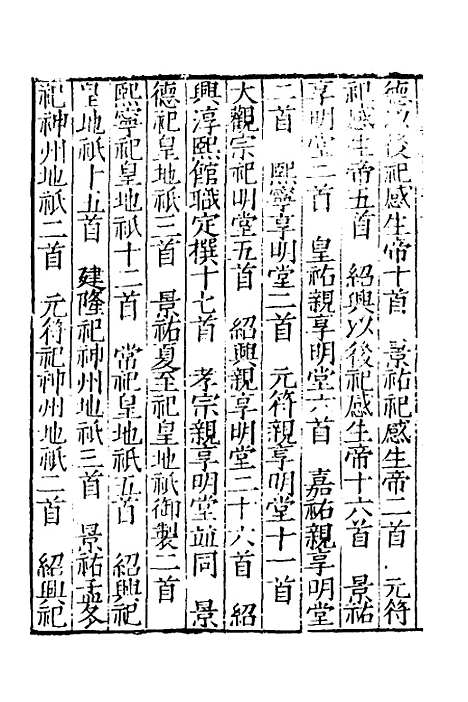 德以後祀感生帝十首　景祐祀感生帝二首　元符
祀感生帝五首　紹興以後祀感生帝十六首　景祐
享明堂二首　皇祐親享明堂六首　嘉祐親享明堂
二首　熙寧享明堂二首　元符親享明堂十一首
大觀宗祀明堂五首　紹興親享明堂二十六首　紹
興淳熙館職定撰十七首　孝宗親享明堂並同　景
德祀皇地祇三首　景祐夏至祀皇地祇御製二首
熙寧祀皇地祇十二首　常祀皇地祇五首　紹興祀
皇地祇十五首　建隆祀神州地祇三首　景祐孟冬
祀神州地祇二首　元符祀神州地祇二首　紹興祀